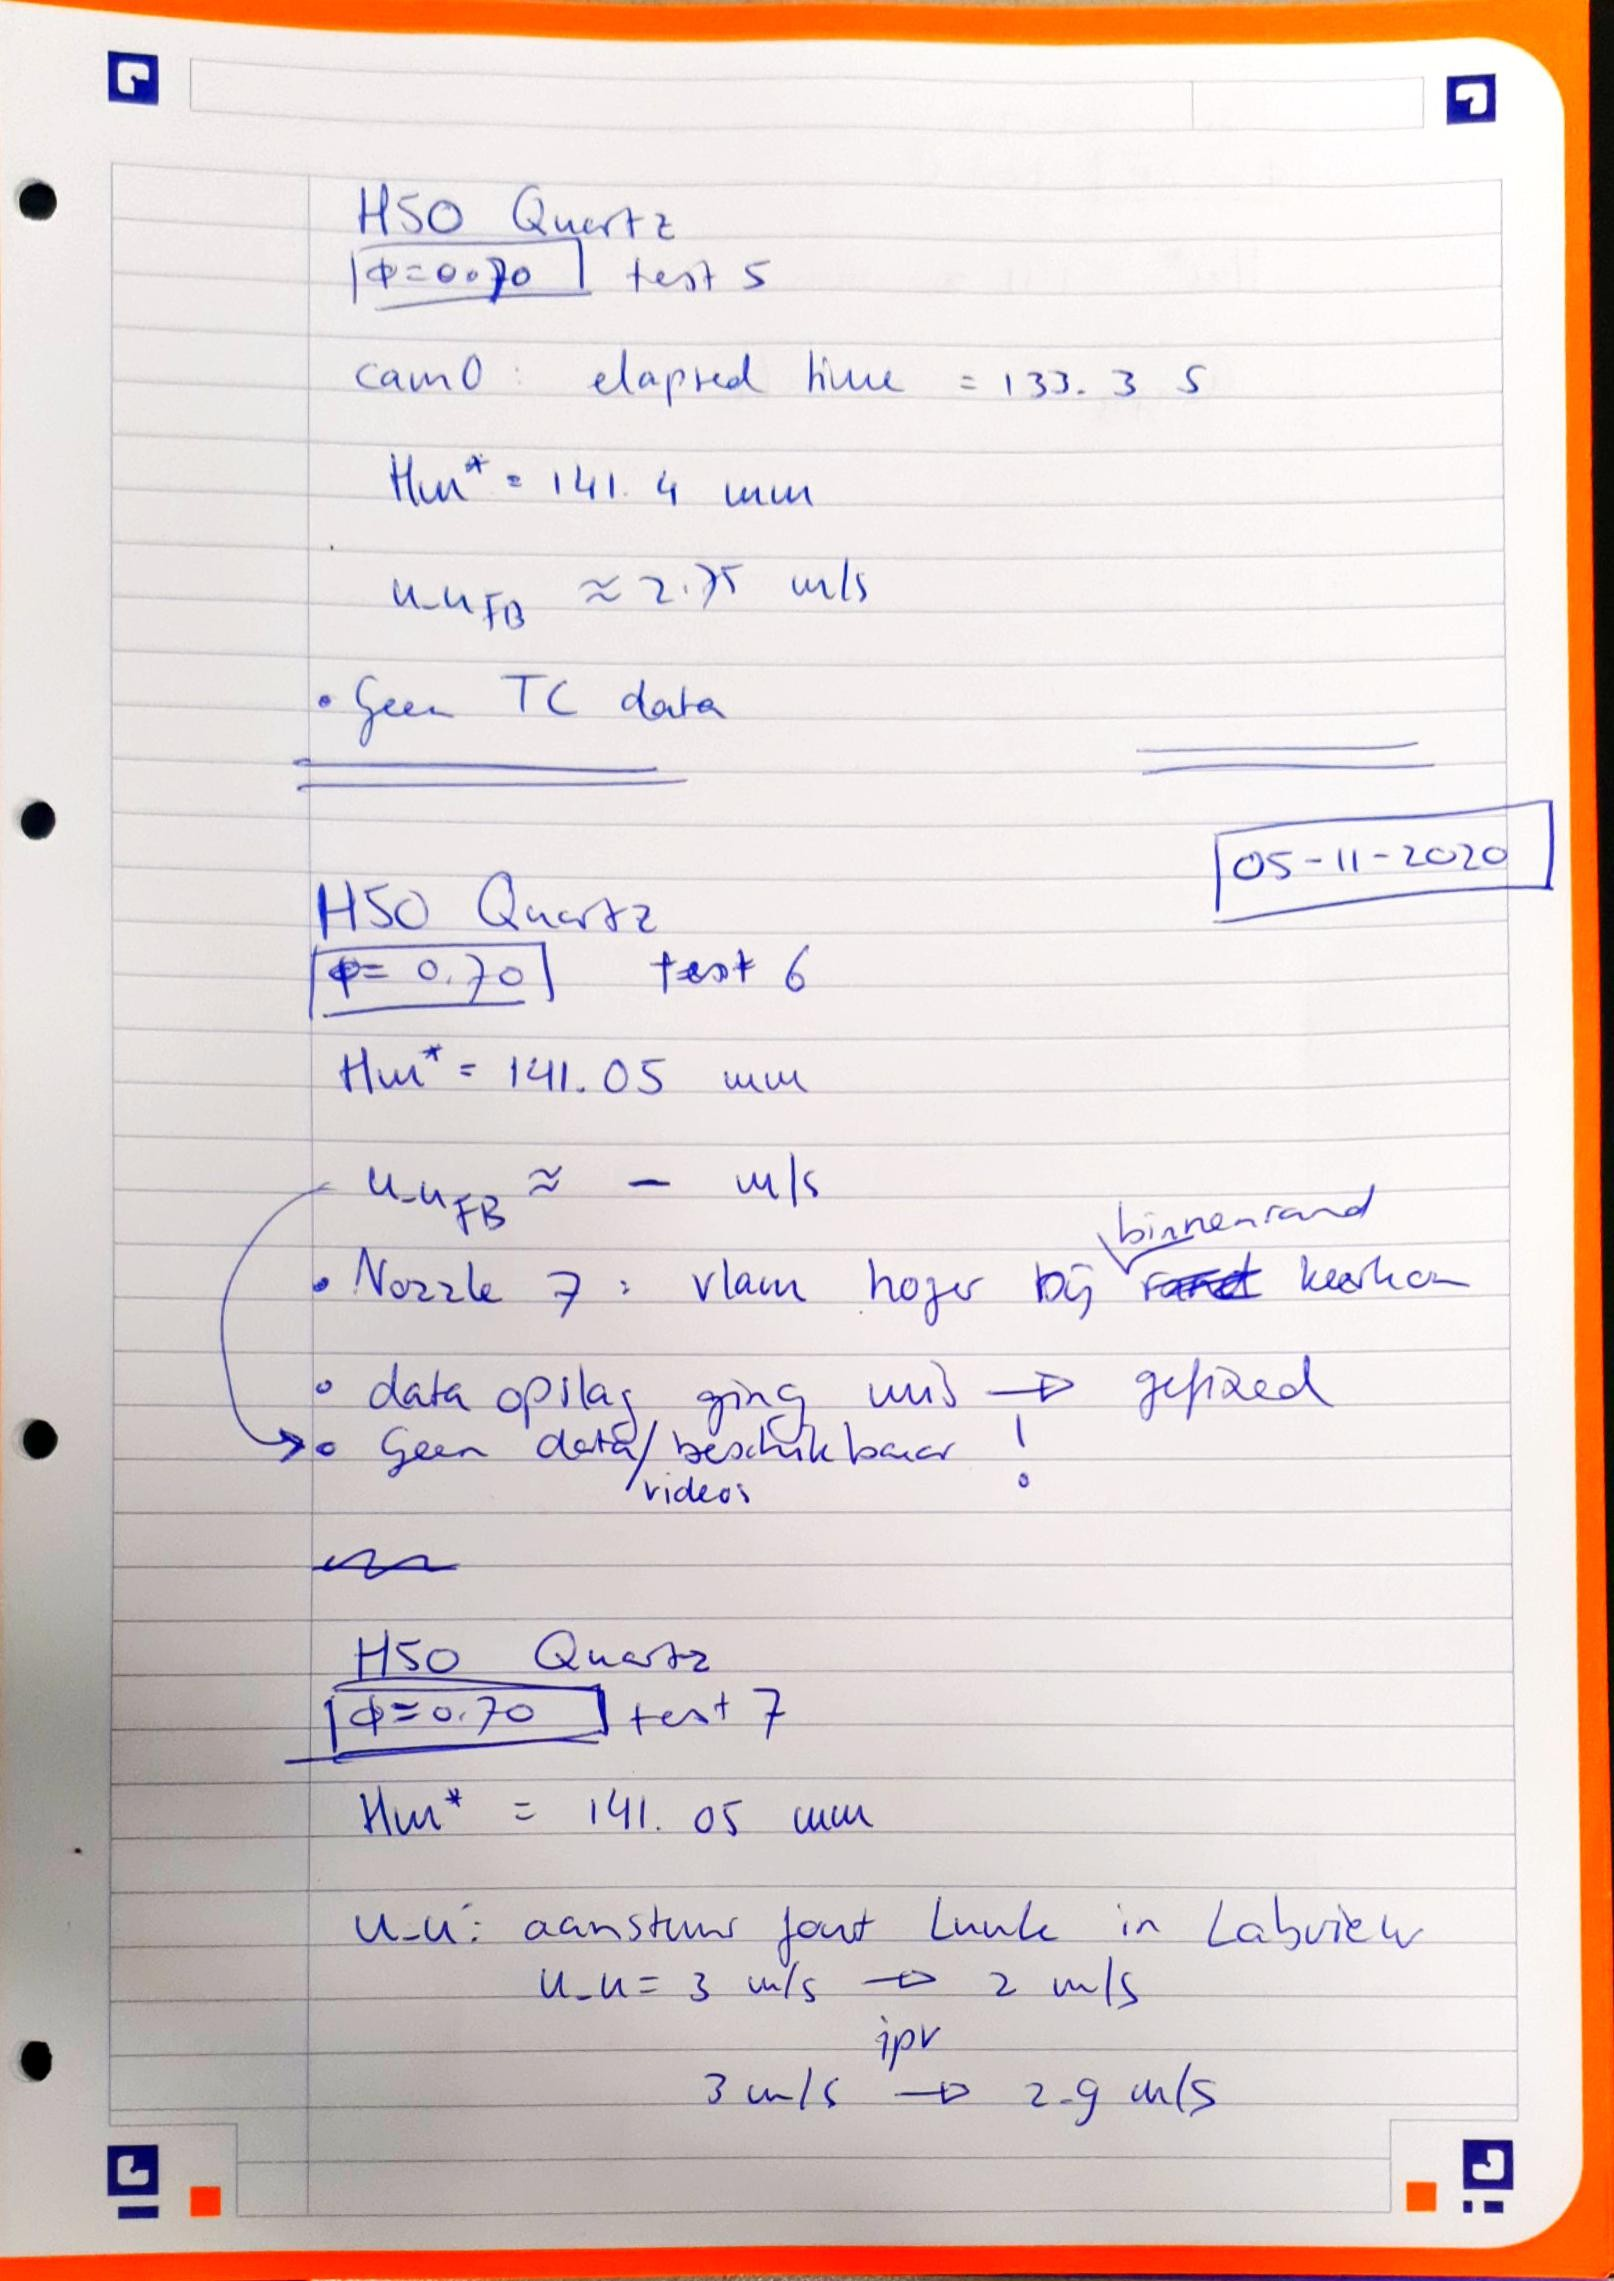 H50 Quartz
φ=0.70 test 5
cam0: elapsed time = 133.3 s
Hm* = 141.4 mm
u_u FB ≈ 2.75 m/s
• Geen TC data
05-11-2020
H50 Quartz
φ= 0.70 test 6
Hm* = 141.05 mm
u_u FB ≈ — m/s
binnenrand
• Nozzle 7: vlam hoger bij rand keerkom
• data opslag ging mis → gefixed
• Geen data/ beschikbaar !
videos
H50 Quartz
φ=0.70 test 7
Hm* = 141.05 mm
u_u: aanstuur fout Luuk in Labview
u_u = 3 m/s → 2 m/s
ipv
3 m/s → 2.9 m/s